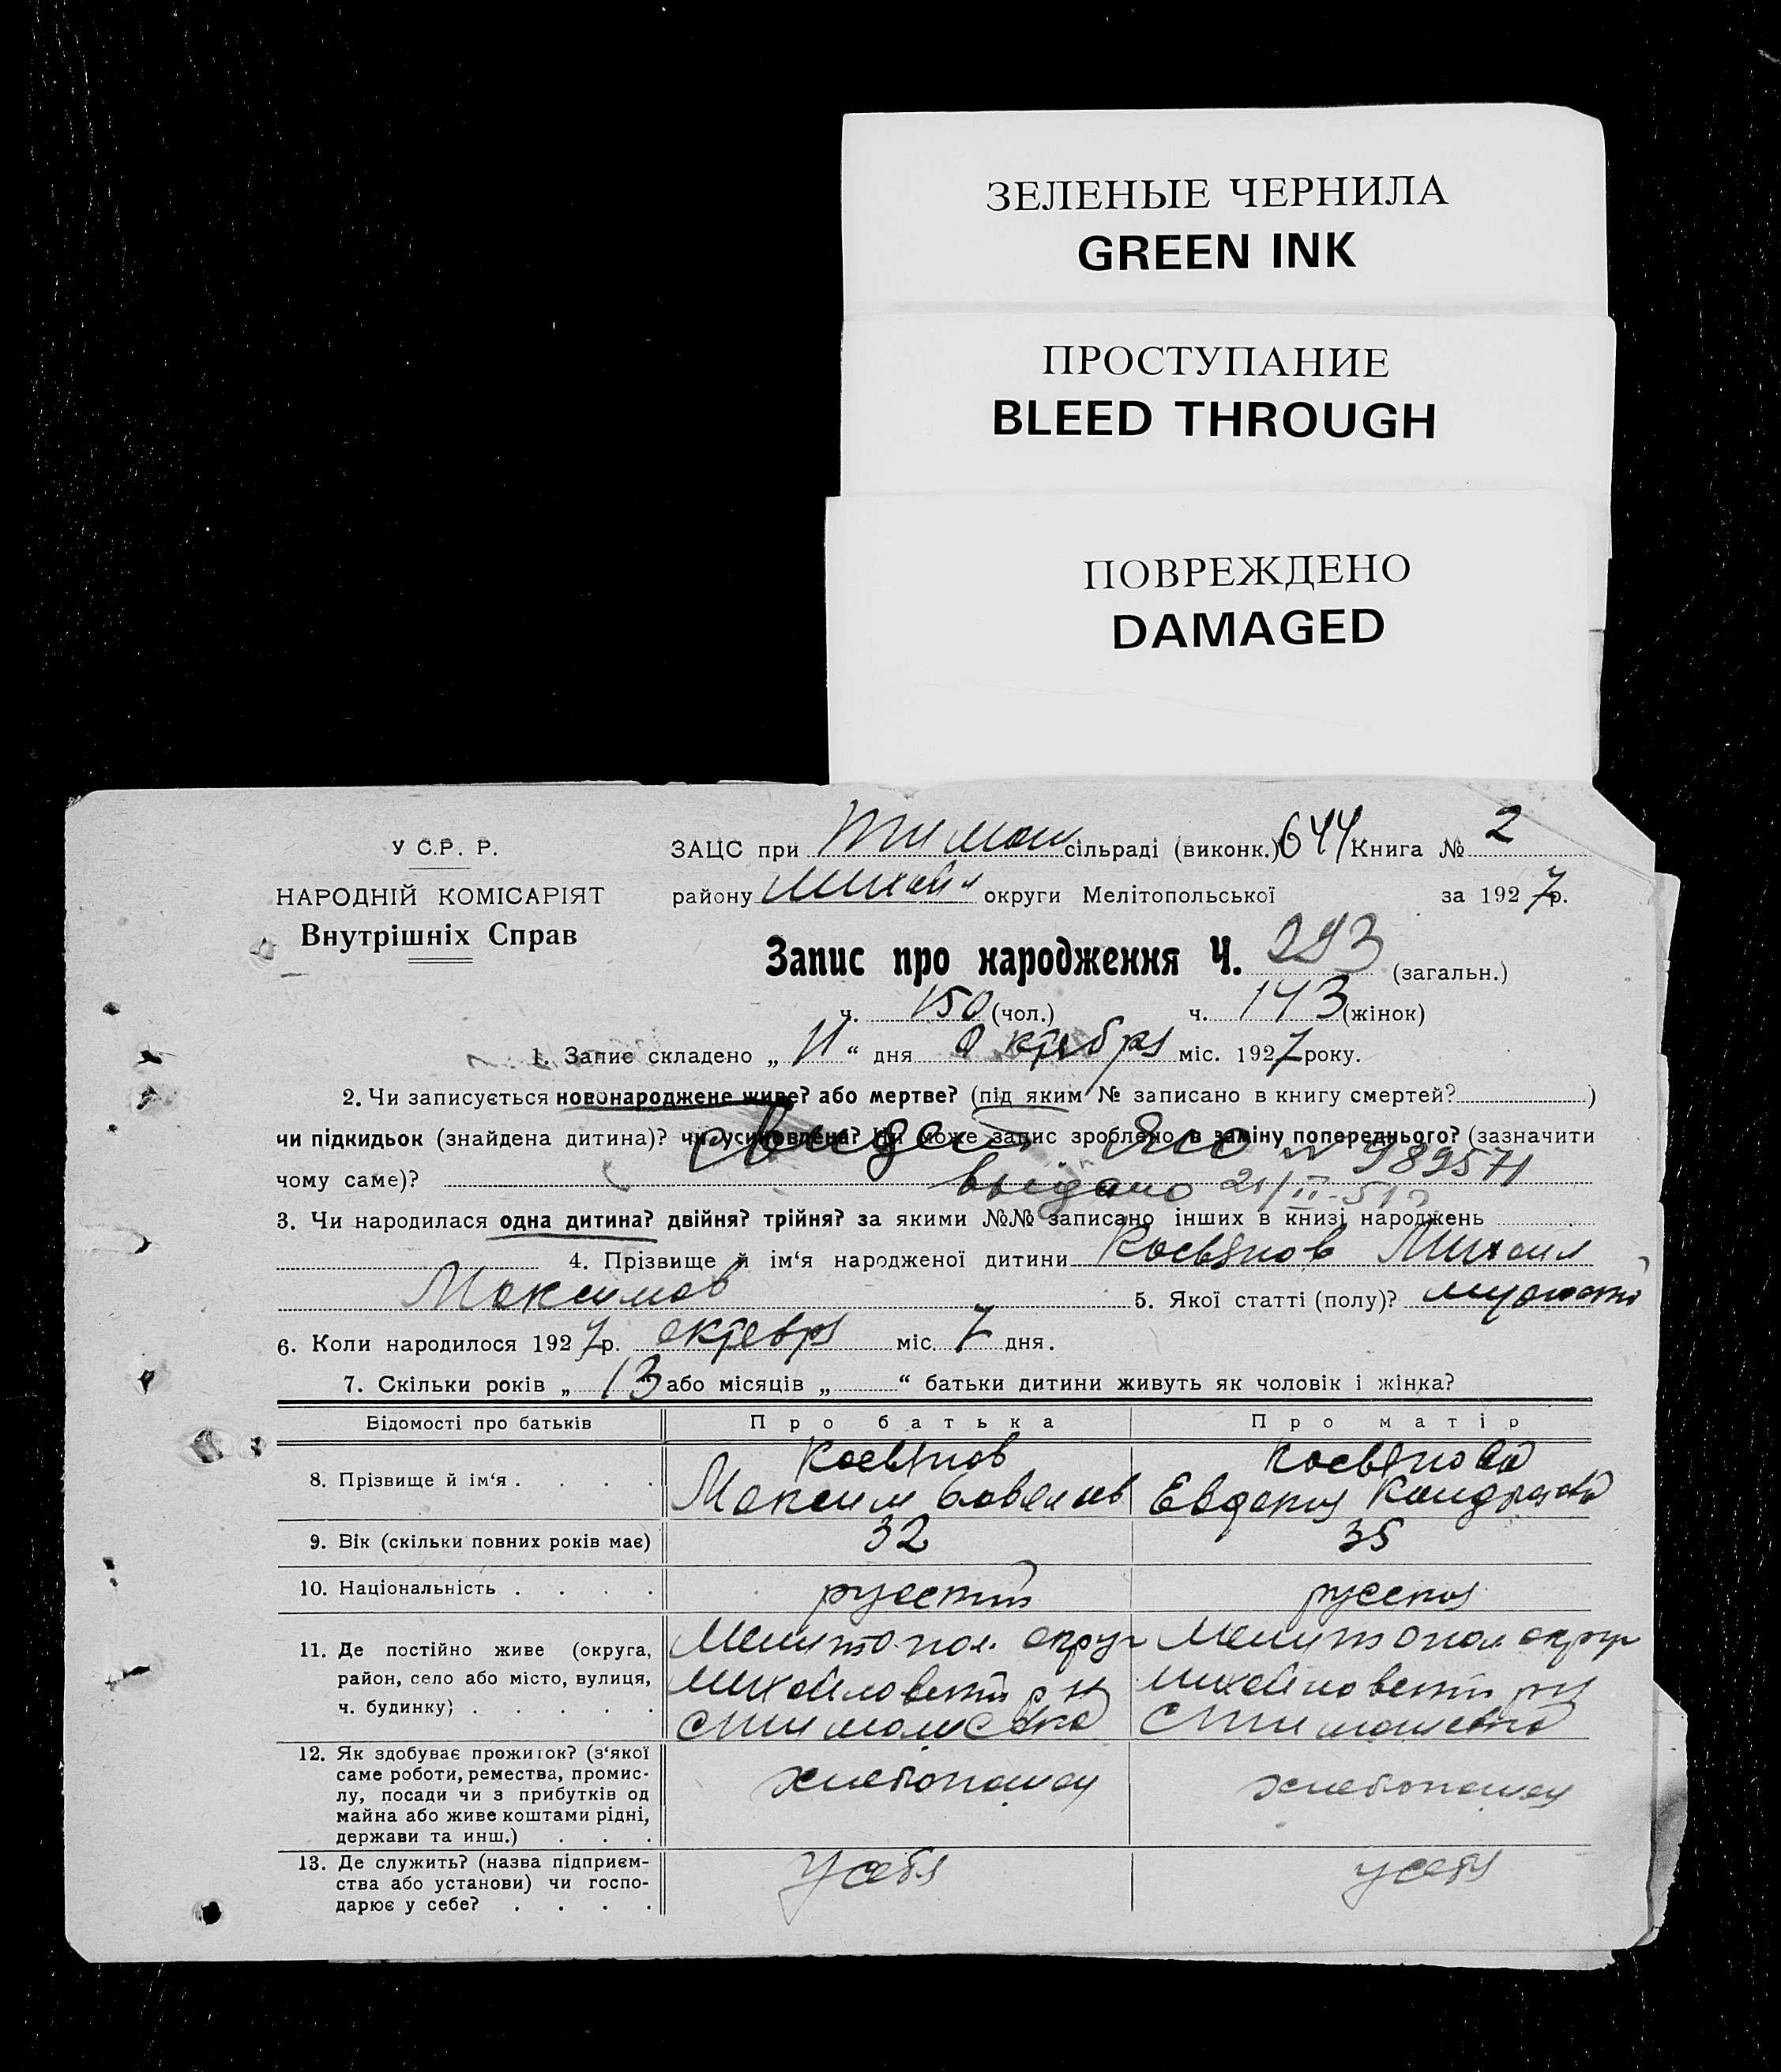 ЗЕЛЕНЫЕ ЧЕРНИЛА
GREEN INK
ПРОСТУПАНИЕ
BLEED THROUGH
ПОВРЕЖДЕНО
DAMAGED
У С.Р. Р.
НАРОДНІЙ КОМІСАРІЯТ
Внутрішніх Справ
ЗАЦС при Тимош сільраді (виконк.) 644 Книга № 2
району Михайл округи Мелітопольської за 1927 р.
Запис про народження Ч. 293 (загальн.)
ч. 150 (чол.) ч. 143 (жінок)
1. Запис складено „ 11 “ дня Октября міс. 1927 року.
2. Чи записується новонароджене живе? або мертве? (під яким № записано в книгу смертей? )
чи підкидьок (знайдена дитина)? чи усиновлена? Чи може запис зроблено в заміну попереднього? (зазначити
чому саме)?
Свидет ЯЮ № 989571
выдано 21/II-51 г
3. Чи народилася одна дитина? двійня? трійня? за якими №№ записано інших в книзі народжень
4. Прізвище й ім‘я народженої дитини Косьянов Михаил
Максимов 5. Якої статті (полу)?
6. Коли народилося 1927 р. октябрь міс. 7 дня.
7. Скільки років „ 13 або місяців „ “ батьки дитини живуть як чоловік і жінка?
Відомості про батьків Про батька Про матір
8. Прізвище й ім‘я . . . . Косьянов Косьянова
Максим Савельев Евдокия Кондратова
9. Вік (скільки повних років має) 32 35
10. Національність . . . . русский русская
11. Де постійно живе (округа, Мелитопол. округ Мелитопол. округ
район, село або місто, вулиця, Михайловский рн Михайловский рн
ч. будинку) . . . . . С Тимошевка С Тимошевка
12. Як здобуває прожиток? (з‘якої
саме роботи, ремества, промис-
лу, посади чи з прибутків од
майна або живе коштами рідні,
держави та инш.) . . .
хлебопашец хлебопашец
13. Де служить? (назва підприєм-
ства або установи) чи госпо-
дарює у себе? . . . .
У себя у себя